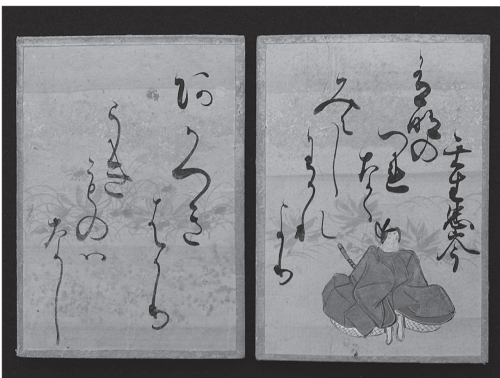 壬生忠岑
有明の
つれ
なく
みえし
わかれ
より
阿かつき
はかり
うき
ものハ
なし